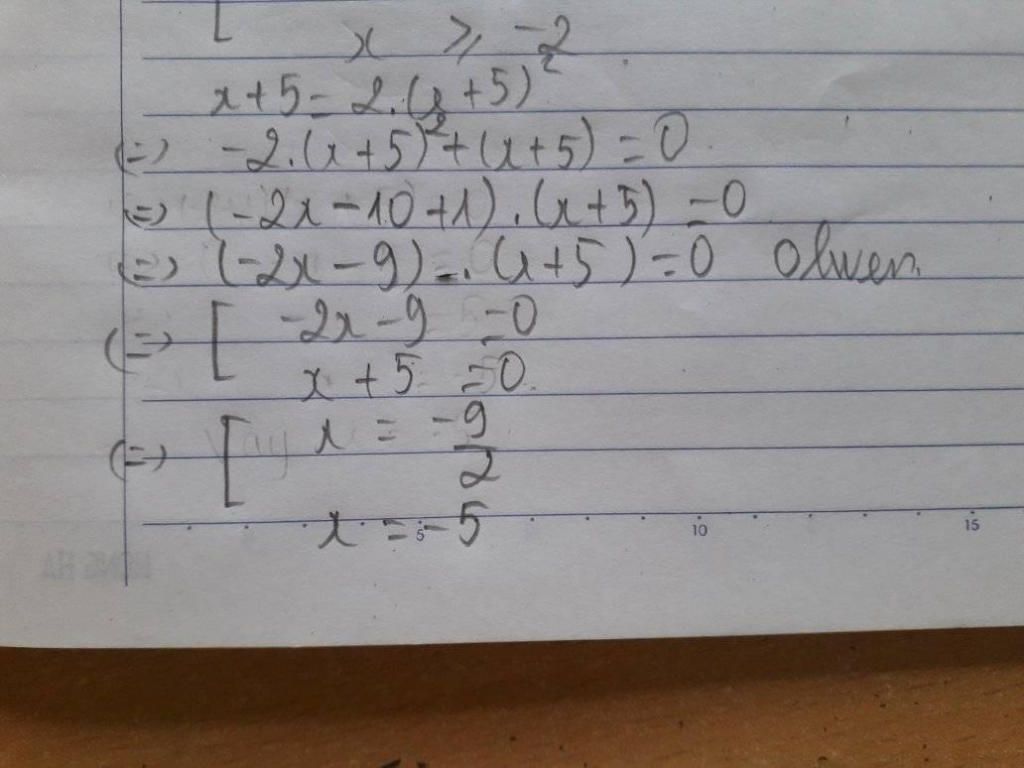 [ x ⩾ -2
x+5 = 2.(x+5)²
(=) -2.(x+5)²+(x+5) = 0
(=) (-2x-10+1).(x+5) = 0
(=) (-2x-9).(x+5) = 0
(=) [ -2x-9 = 0
x+5 = 0
(=) [ x = -9/2
x = -5
5 10 15